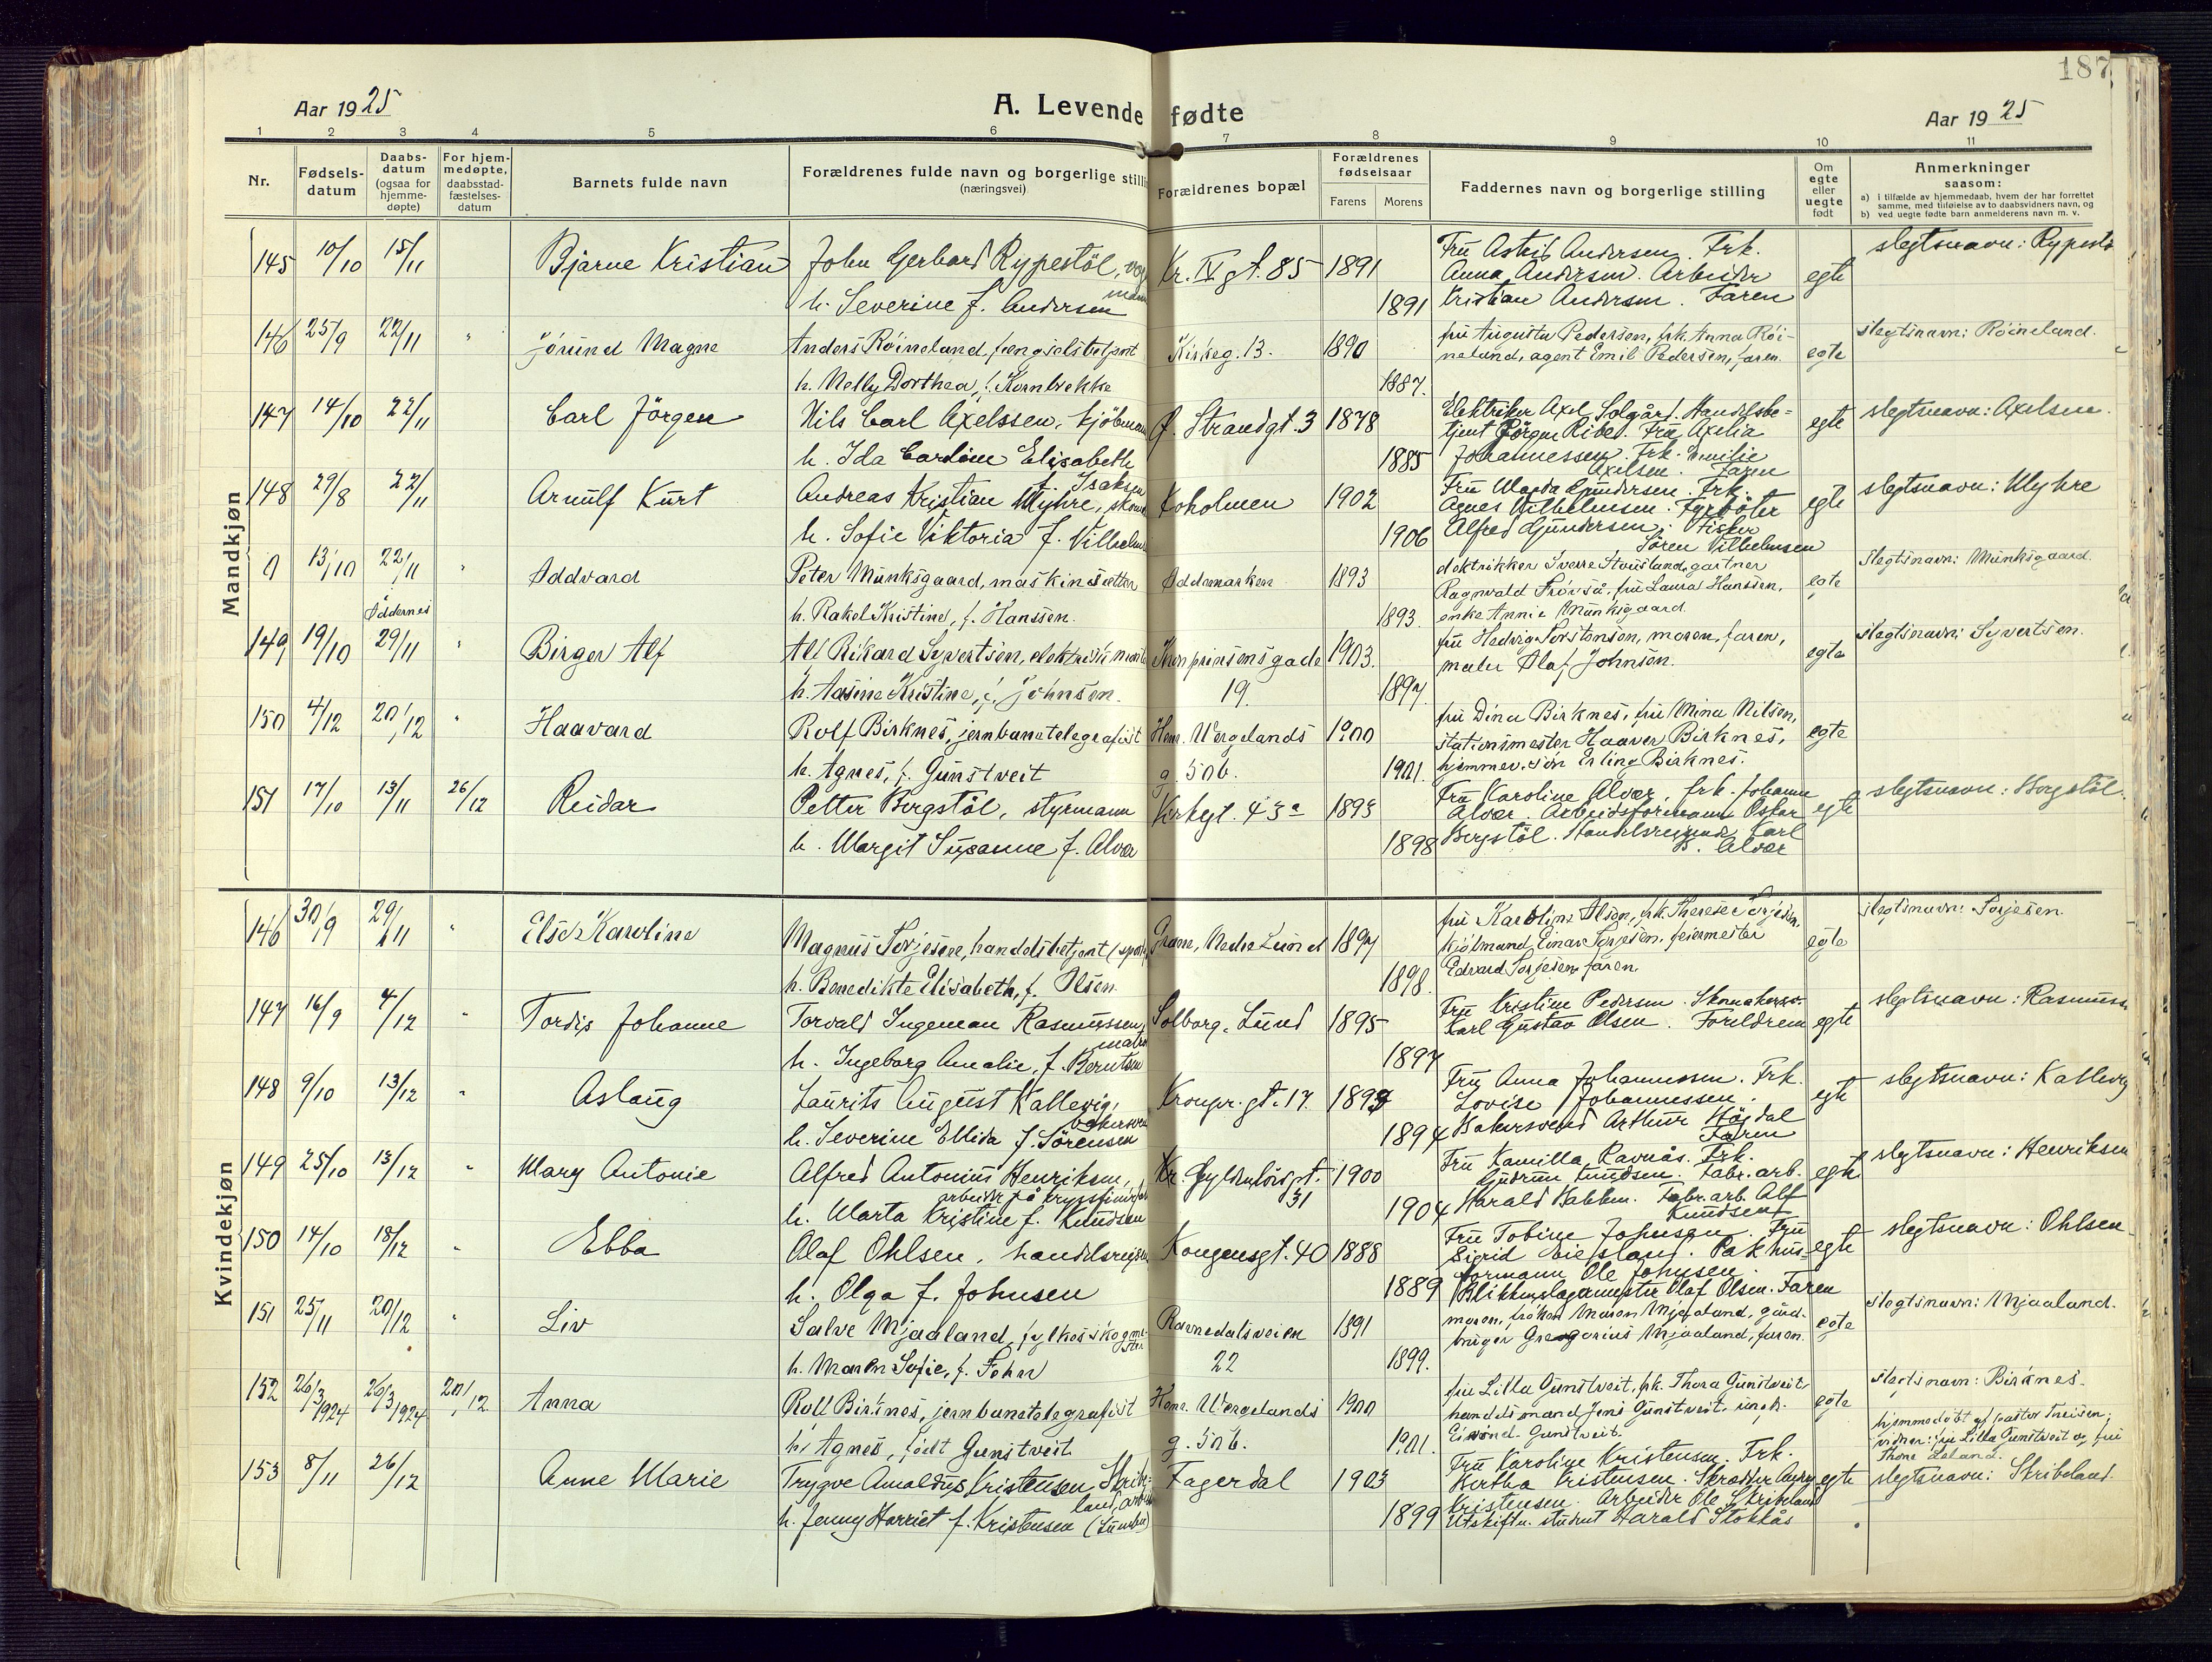 187
Aar 1925
A. Levende fødte
Aar 1925
1 2 3 4 5 6 7 8 9 10 11
Nr.
Fødselsdatum
Daabsdatum (ogsaa for hjemmedøpte)
For hjemmedøpte, daabsstadfæstelsesdatum
Barnets fulde navn
Forældrenes fulde navn og borgerlige stilli
(næringsvei)
Forældrenes bopæl
Forældrenes fødselsaar
Farens Morens
Faddernes navn og borgerlige stilling
Om egte eller uegte født
Anmerkninger
saasom:
a) i tilfælde av hjemmedaab, hvem der har forrettet samme, med tilføielse av to daabsvidners navn, og
b) ved uegte fødte barn anmelderens navn m. v.
Mandkjøn
145 10/10 15/11 Bjarne Kristian John Gerhard Rypestöl, Kr. IV gt. 85 1891 Fru Astrid Andersen. Frk. egte slegtsnavn: Rypestö
Anna Andersen. Arbeider
h. Severine f. Andersen 1891 Kristian Andersen. Faren
146 25/9 22/11 " Jörund Magne Anders Röineland, fengselsbetjent Kirkeg. 13. 1890 fru Augusta Pedersen, frk. Anna Röi- egte slegtsnavn: Röineland.
neland, agent Emil Pedersen, faren.
h. Nelly Dorthea, f. Kornbrekke 1887.
147 14/10 22/11 Carl Jörgen Nils Carl Axelssen, kjöbman Ø. Strandgt. 3 1878 Elektriker Axel Solgård. Handelsbe= egte slegtsnavn: Axelsen.
tjent Jörgen Ribe. Fru Axelia
h. Ida Caroline Elisabeth 1885 Johannessen. Frk. Emilie
f. Isaksen Axelsen. Faren
148 29/8 22/11 Arnulf Kurt Andreas Kristian Myhre, Koholmen 1902 Fru Gundersen. Frk. egte slegtsnavn: Myhre
Agnes Vilhelmsen. Fyrböter
h. Sofie Viktoria f. Vilhelm 1906 Alfred Gundersen. Fisker
Sören Vilhelmsen
9 13/10 22/11 " Oddvard Peter Munksgaard, maskinsetter Oddemarken 1893 elektrikker Sverre Stausland, gartner egte slegtsnavn: Munksgaard.
Oddernes
Ragnvald fru Laura Hanssen,
h. Rakel Kristine, f. Hanssen. 1893. enke Annie Munksgaard.
149 19/10 29/11 " Birger Alf Alf Rikard Syvertsen, elektrisk Kronprinsensgade 1903. fru Hedvig Torstensen, moren, faren, egte slegtsnavn: Syvertsen.
maler Olaf Johnsen.
h. Aasine Kristine, f. Johnsen. 19. 1897
150 4/12 20/12 " Haavard Rolf Birknes, jernbanetelegrafist Henr. Wergelands 1900 fru Dina Birknes, fru Mina Nilsen, egte
stationsmester Haaver Birknes,
h. Agnes, f. Gunstveit g. 50b. 1901. hjemmev. sön Erling Birknes.
151 17/10 13/11 26/12 Reidar Petter Bergstöl, styrmann Kirkegt. 43a 1893 Fru Karoline Alvær, frk. Johanne egte slegtsnavn: Bergstöl.
Alvær. Arbeidsformann Oskar
h. Margit Susanne f. Alvær 1898 Bergstöl. Handelsreisende Karl
B. Alvær
Kvindekjøn
146 30/9 29/11 " Else Karoline Magnus Torjesen, handelsbetjent Gram, Nedre Lund 1897 fru Karoline Olsen, frk. Therese Torjesen, egte slegtsnavn: Torjesen.
kjölmand Einar Torjesen, feiermester
h. Benedikte Elisabeth, f. Olsen. 1898. Edvard Torjesen, faren.
147 16/9 4/12 " Tordis Johanne Torvald Ingeman Rasmussen, Solborg, Lund 1895 Fru Kristine Pedersen. egte slegtsnavn: Rasmuss
Karl Gustav Olsen. Foreldrene
h. Ingeborg Amalie, f. Berntsen 1897
148 9/10 13/12 " Aslaug Laurits August Kallevig, Kronpr. gt. 17. Fru Anna Johannessen. Frk. egte slegtsnavn: Kallevig
Lovise Johannessen.
h. Severine Ellida f. Sörensen 1894 Bakersvend Arthur Högdal
Faren
149 25/10 13/12 " Mary Antonie Alfred Antonius Henriksen, Kr. Gyldenlövsgt. 31 1900 Fru Kamilla Ravnås. Frk. egte slegtsnavn: Henriksen
Gudrun Knudsen. Fabr. arb.
h. Marta Kristine f. Knudsen 1904 Harald Fabr. arb. Alf
Knudsen
150 14/10 18/12 " Ebba Olaf Ohlsen, handelsreisen Kongensgt. 40 1888 Fru Tobine Johnsen. Fru egte slegtsnavn: Ohlsen
Sigrid Eieland. Pakhus=
formann Ole Johnsen.
h. Olga f. Johnsen 1889 Blikkenslagermester Olaf Olsen. Faren
151 25/11 20/12 " Liv Salve Mjaaland, fylkesskogmester Ravnedalsveien 1891 moren, fröken Maren Mjaaland, gård- egte slegtsnavn: Mjaaland.
bruger Gregorius Mjaaland, faren.
h. Maren Sofie, f. Fehn 22 1899.
152 26/3 1924 26/3 1924 20/12 Anna Rolf Birknes, jernbanetelegrafist Henr. Wergelands 1900 fru Lilla Gunstveit, frk. Thora Gunstveit, egte slegtsnavn: Birknes.
handelsmand Jens Gunstveit, ungk.
h. Agnes, födt Gunstveit g. 50b. 1901. Eivind Gunstveit.
hjemmedöbt af pastor
vidner: fru Lilla Gunstveit og fru
153 8/11 26/12 Anne Marie Trygve Arnaldus Kristensen Skribe= Fagerdal 1903 Fru Karoline Kristensen. Frk. egte slegtsnavn: Skribeland.
land, arbeid
Hertha Kristensen. Skrædder
Kristensen. Arbeider Ole Skribeland
h. Jenny Harriet f. Kristensen 1899 Utskiftn. student Harald Stokkås